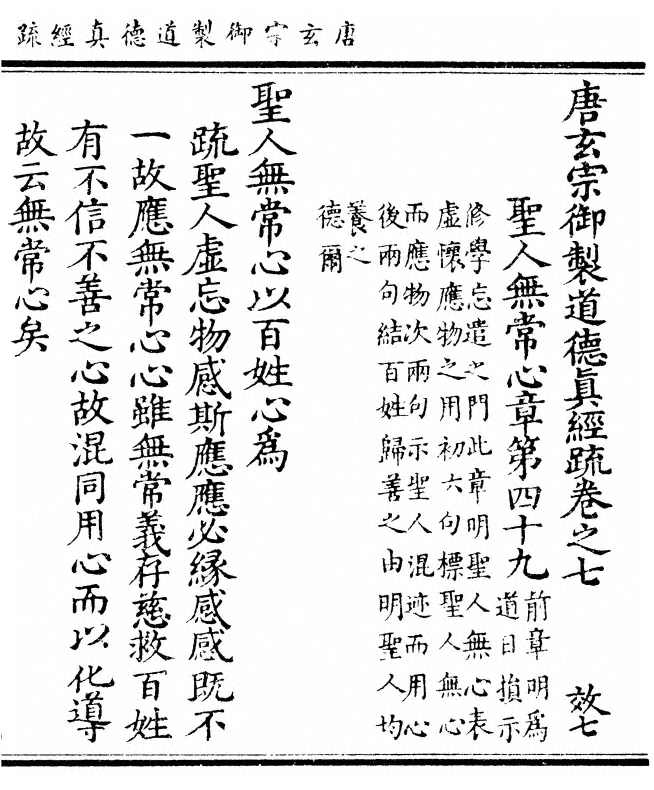 唐玄宗御製道德真經疏
唐玄宗御製道德眞經疏卷之七 效七
聖人無常心章第四十九
前章明爲
道日損示
修學忘遣之門此章明聖人無心表
虛懷應物之用初六句標聖人無心
而應物次兩句示聖人混迹而用心
後兩句結百姓歸善之由明聖人均
養之
德爾
聖人無常心以百姓心爲
疏聖人虛忘物感斯應應必縁感感既不
一故應無常心心雖無常義存慈救百姓
有不信不善之心故混同用心而以化導
故云無常心矣